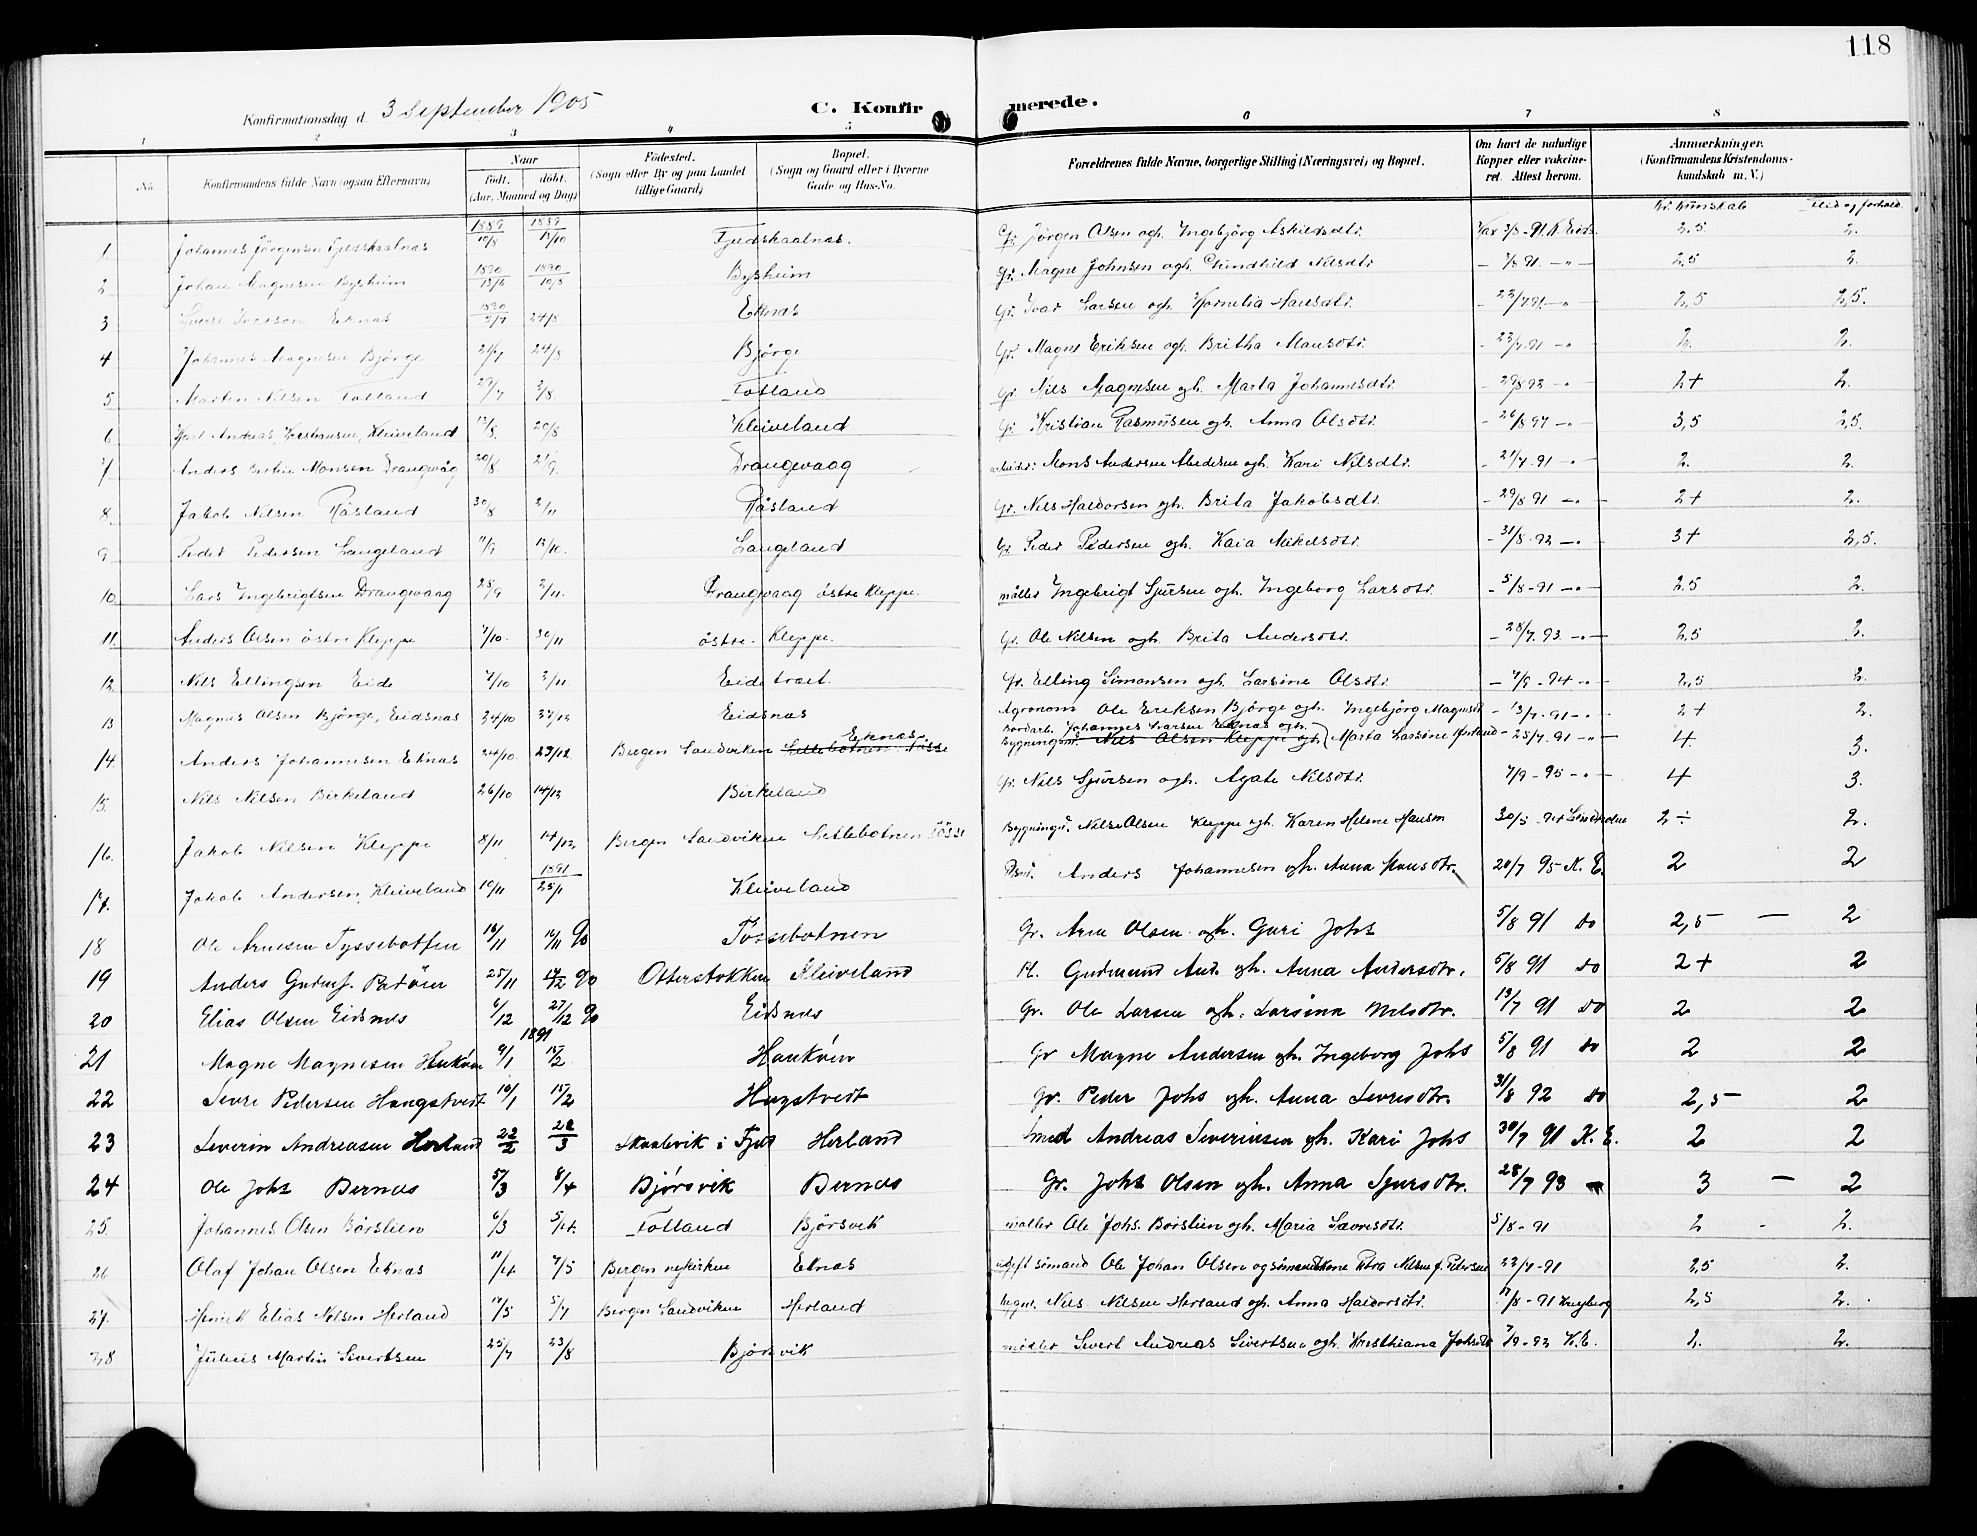 118
Konfirmationsdag d. 3 September 1905. C. Konfirmerede.
1 2 3 4 5 6 7 8
No. Konfirmandens fulde Navn (ogsaa Efternavn) Naar født. døbt. (Aar, Maaned og Dag) Fødested. (Sogn eller By og paa Landet tillige Gaard) Bopæl. (Sogn og Gaard eller i Byerne Gade og Hus-No. Forældrenes fulde Navne, borgerlige Stilling (Næringsvei) og Bopæl. Om havt de naturlige Kopper eller vakcineret. Attest herom. Anmærkninger. (Konfirmandens Kristendomskundskab m. V.)
Kr. Kunskab Flid og forhold.
1 Johannes Jörgensen Fjeldskaalnas 1889 10/8 1889 13/10 Fjeldskaalnas. Gr. Jörgen Olsen ogh. Ingebjörg Askildsdtr. Vax 3/8-91 K. Eide. 2,5 2.
2 Johan Magnesen Bysheim 1890 13/6 1890 10/8 Bysheim Gr. Magne Johnsen ogh. Gundhild Nilsdtr. 2,5 2.
3 Iversen Eknas 1890 5/7 24/8 Eknas Gr. Ivar Larsen ogh. Kornelia Hansdtr. - 22/7 91 - " 2,5 2,5.
4 Johannes Magnesen Björge 21/7 24/8 Björge Gr. Magne Eriksen ogh. Britha Monsdtr. - 22/7-91 - " 2. 2.
5 Martin Nilsen Totland 29/7 3/8 Totland Gr. Nils Magnesen ogh. Marta Johannesdtr. - 29/8 92 - " 2+ 2.
6 Karl Andreas Kristiansen, Kleiveland 13/8. 20/8 Kleiveland Gr. Kristian Rasmusen ogh. Anna Olsdtr. - 26/8 97 - " 3,5 2,5.
7 Anders Bertin Monsen Drangevåg 20/8 21/9 Drangevaag Mons Andersen ogh. Kari Nilsdtr. - 21/7-91 - " 2. 2.
8. Jakob Nilsen Råsland 30/8 2/11 Råsland Gr. Nils Haldorsen ogh. Brita Jakobsdtr. - 29/8 91 - " - 2+ 2.
9 Peder Pedersen Langeland 11/9 12/10. Langeland Gr. Peder Pedersen ogh. Kaia Mikelsdtr. - 31/8-92 - " 3+ 2,5.
10. Lars Ingebrigtsen Drangevaag 28/9 2/11. Drangevaag östre Kleppe. möller Ingebrigt Sjursen ogh. Ingeborg Larsdtr. - 5/8-91 - " 2,5 2.
11. Anders Olsen östre Kleppe 7/10. 30/11 östre. Kleppe. Gr. Ole Nilsen ogh. Brita Andersdtr. - 28/7.93 - " - 2,5 2.
12. Nils Ellingsen Eide 7/10 2/11. Eidetræt. Gr. Elling Simonsen ogh. Larsine Olsdtr. 2,5 2.
13 Magnus Olsen Björge, Eidsnas 24/10 Eidsnas Agronom Ole Eriksen Björge ogh. Ingebjörg Magnesdtr. - 13/7.91 - " . 2+ 2.
14 Anders Johannesen Eknas 24/10. 29/12 Bergen Sandviken Eknas Johannes Larsen Eknas ogh. Nils Olsen Kleppe ogh. Marta Larsine - 25/7.91 - " - 4. 3.
15. Nils Nilsen Birkeland 26/10 14/12 Birkeland Gr. Nils Sjursen ogh. Agate Nilsdtr. 7/9-95 - " - 4 3.
16. Jakob Nilsen Kleppe 8/11 14/12 Bergen Sandviken Settebotnen Tösse Bygnings. Nils Olsen Kleppe ogh. Karen Helene Hansen 2÷ 2.
17. Jakob Andersen, Kleiveland 10/11 1891 25/1 Kleiveland Anders Johannesen ogh. Anna Monsdtr. 20/7 95 K. E. 2 2
18 Ole Arnesen Tyssebotten 16/11 16/11 90 Tössebotnen Gr. Arne Olsen ogh. Guri Johs 5/8 91 do 2,5 - 2
19 Anders Gudm.s. Rødöin 25/11 90 Otterstokken Kleiveland Gudmund And. ogh. Anna Andersdtr. 5/8 91 do 2+ 2
20 Elias Olsen Eidsnes 6/12 27/12 90 Eidsnes Gr. Ole Larsen ogh. Larsina Nilsdtr. 13/7 91 do 2 2
21 Magne Magnesen Haukøen 9/1 1891 15/2 Haukøen Gr Magne Andersen ogh. Ingeborg Johs 5/8 91 do 2 2
22 Sevre Pedersen Hangstvedt 10/1 15/2 Hugstvedt Gr. Peder Johs ogh. Anna Sevresdtr. 31/8 92 do 2,5- 2
23 Severin Andreasen Herland 22/2 22/3 Skaalevik i Fjeld Herland Smed Andreas Severinsen ogh. Kari Johs 30/7 91 K. E. 2 2
24 Ole Johs Bernæs 5/3 8/4 Bjørsvik Bernes Gr. Johs Olsen ogh. Anna Sjursdtr. 28/7 93 3 - 2
25. Johannes Olsen Börslien 6/3 5/4. Totland Björsvik möller Ole Johs. Börslien ogh. Maria Sævresdtr. 5/8-91 2 - 2.
26 Olaf Johan Olsen Eknas 11/4 7/5 Bergen nykirken Eknas sömand Ole Johan Olsen og Petra Nilsine f. Petersen 22/7-91 2,5 2.
27. Henrik Elias Nilsen Herland 17/5 5/7 Bergen Sandviken Herland Nils Nilsen Herland ogh. Anna Haldorsdtr. 17/8-91 2,5 2.
28 Julius Martin Sivertsen 25/7 23/8 Björsvik möller Sivert Andreas Sivertsen ogh. Kristhiana Johsdtr 7/9-92 K.E. 2. 2.